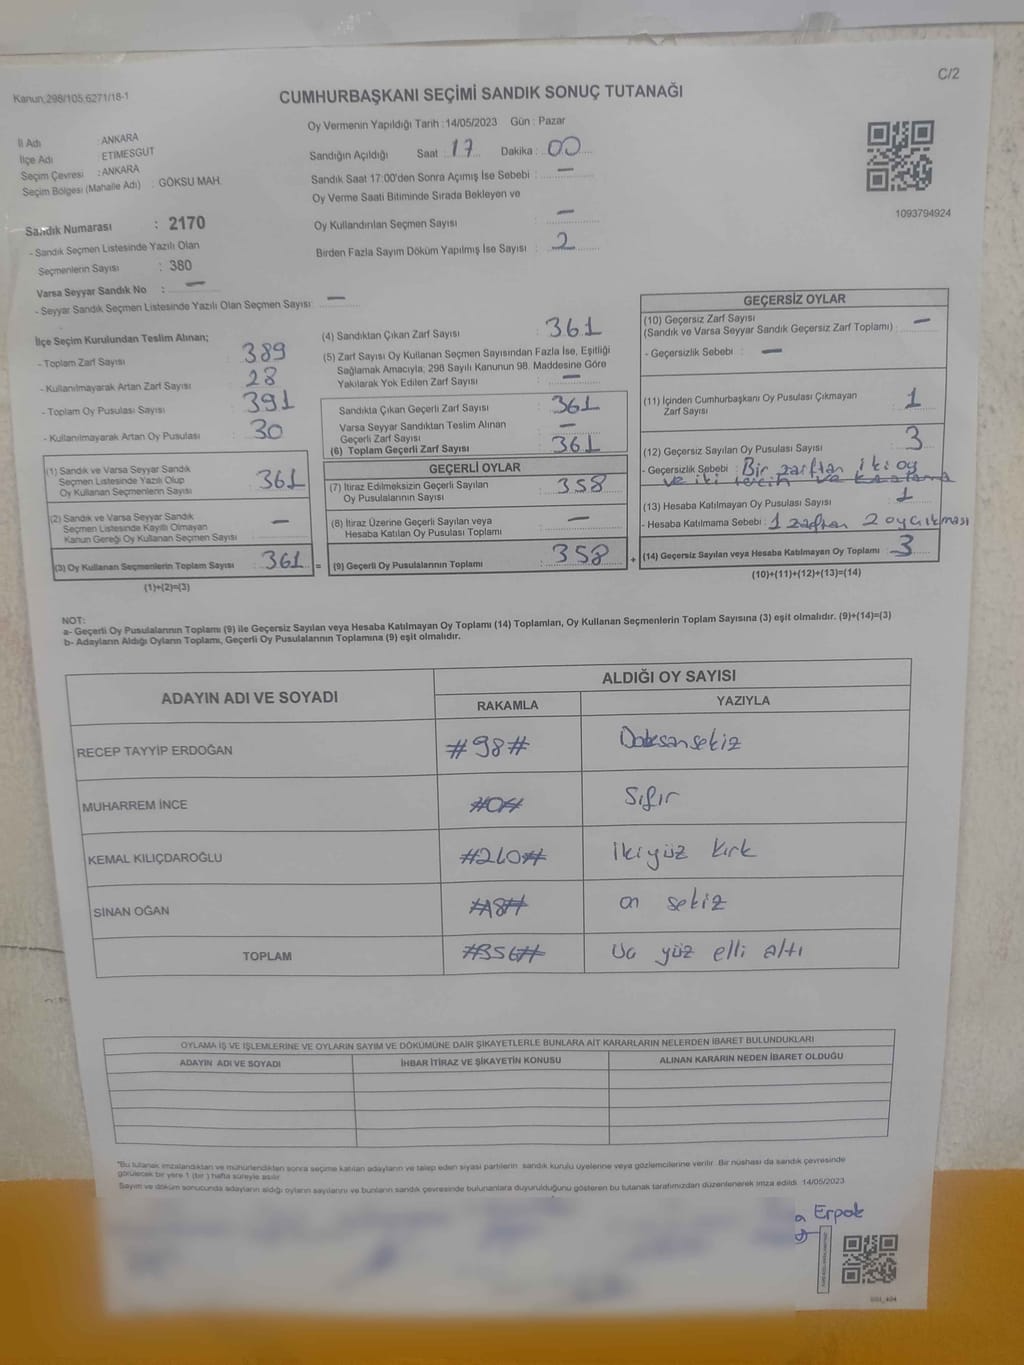 C/2
Kanun,298/105,6271/18-1
CUMHURBAŞKANI SEÇİMİ SANDIK SONUÇ TUTANAĞI
Oy Vermenin Yapıldığı Tarih :14/05/2023 Gün : Pazar
İl Adı : ANKARA
İlçe Adı : ETİMESGUT
Seçim Çevresi : ANKARA
Seçim Bölgesi (Mahalle Adı) : GÖKSU MAH.
Sandığın Açıldığı Saat : 17 Dakika : 00
Sandık Saat 17:00'den Sonra Açımış İse Sebebi : —
Oy Verme Saati Bitiminde Sırada Bekleyen ve
Oy Kullandırılan Seçmen Sayısı : —
Birden Fazla Sayım Döküm Yapılmış İse Sayısı : 2
1093794924
Sandık Numarası : 2170
- Sandık Seçmen Listesinde Yazılı Olan
Seçmenlerin Sayısı : 380
Varsa Seyyar Sandık No : —
- Seyyar Sandık Seçmen Listesinde Yazılı Olan Seçmen Sayısı : —
İlçe Seçim Kurulundan Teslim Alınan;
- Toplam Zarf Sayısı : 389
- Kullanılmayarak Artan Zarf Sayısı : 28
- Toplam Oy Pusulası Sayısı : 391
- Kullanılmayarak Artan Oy Pusulası : 30
(1) Sandık ve Varsa Seyyar Sandık
Seçmen Listesinde Yazılı Olup
Oy Kullanan Seçmenlerin Sayısı : 361
(2) Sandık ve Varsa Seyyar Sandık
Seçmen Listesinde Kayıtlı Olmayan
Kanun Gereği Oy Kullanan Seçmen Sayısı : —
(3) Oy Kullanan Seçmenlerin Toplam Sayısı : 361 =
(1)+(2)=(3)
(4) Sandıktan Çıkan Zarf Sayısı : 361
(5) Zarf Sayısı Oy Kullanan Seçmen Sayısından Fazla İse, Eşitliği
Sağlamak Amacıyla, 298 Sayılı Kanunun 98. Maddesine Göre
Yakılarak Yok Edilen Zarf Sayısı : —
Sandıkta Çıkan Geçerli Zarf Sayısı : 361
Varsa Seyyar Sandıktan Teslim Alınan
Geçerli Zarf Sayısı : —
(6) Toplam Geçerli Zarf Sayısı : 361
GEÇERLİ OYLAR
(7) İtiraz Edilmeksizin Geçerli Sayılan
Oy Pusulalarının Sayısı : 358
(8) İtiraz Üzerine Geçerli Sayılan veya
Hesaba Katılan Oy Pusulası Toplamı : —
(9) Geçerli Oy Pusulalarının Toplamı : 358 +
GEÇERSİZ OYLAR
(10) Geçersiz Zarf Sayısı
(Sandık ve Varsa Seyyar Sandık Geçersiz Zarf Toplamı) : —
- Geçersizlik Sebebi : —
(11) İçinden Cumhurbaşkanı Oy Pusulası Çıkmayan
Zarf Sayısı : 1
(12) Geçersiz Sayılan Oy Pusulası Sayısı : 3
- Geçersizlik Sebebi : Bir zarftan iki oy
ve iki tercih ve
(13) Hesaba Katılmayan Oy Pusulası Sayısı : 1
- Hesaba Katılmama Sebebi : 1 zaftan 2 oy çıkması
(14) Geçersiz Sayılan veya Hesaba Katılmayan Oy Toplamı : 3
(10)+(11)+(12)+(13)=(14)
NOT:
a- Geçerli Oy Pusulalarının Toplamı (9) ile Geçersiz Sayılan veya Hesaba Katılmayan Oy Toplamı (14) Toplamları, Oy Kullanan Seçmenlerin Toplam Sayısına (3) eşit olmalıdır. (9)+(14)=(3)
b- Adayların Aldığı Oyların Toplamı, Geçerli Oy Pusulalarının Toplamına (9) eşit olmalıdır.
ADAYIN ADI VE SOYADI ALDIĞI OY SAYISI
RAKAMLA YAZIYLA
RECEP TAYYİP ERDOĞAN #98# Doksan sekiz
MUHARREM İNCE #0# Sıfır
KEMAL KILIÇDAROĞLU #240# İki yüz kırk
SİNAN OĞAN #18# on sekiz
TOPLAM #356# Üç yüz elli altı
OYLAMA İŞ VE İŞLEMLERİNE VE OYLARIN SAYIM VE DÖKÜMÜNE DAİR ŞİKAYETLERLE BUNLARA AİT KARARLARIN NELERDEN İBARET BULUNDUKLARI
ADAYIN ADI VE SOYADI İHBAR İTİRAZ VE ŞİKAYETİN KONUSU ALINAN KARARIN NEDEN İBARET OLDUĞU
"Bu tutanak imzalandıktan ve mühürlendikten sonra seçime katılan adayların ve talep eden siyasi partilerin sandık kurulu üyelerine veya gözlemcilerine verilir. Bir nüshası da sandık çevresinde
görülecek bir yere 1 (bir ) hafta süreyle asılır.
Sayım ve döküm sonucunda adayların aldığı oyların sayılarını ve bunların sandık çevresinde bulunanlara duyurulduğunu gösteren bu tutanak tarafımızdan düzenlenerek imza edildi. 14/05/2023
a Erpak